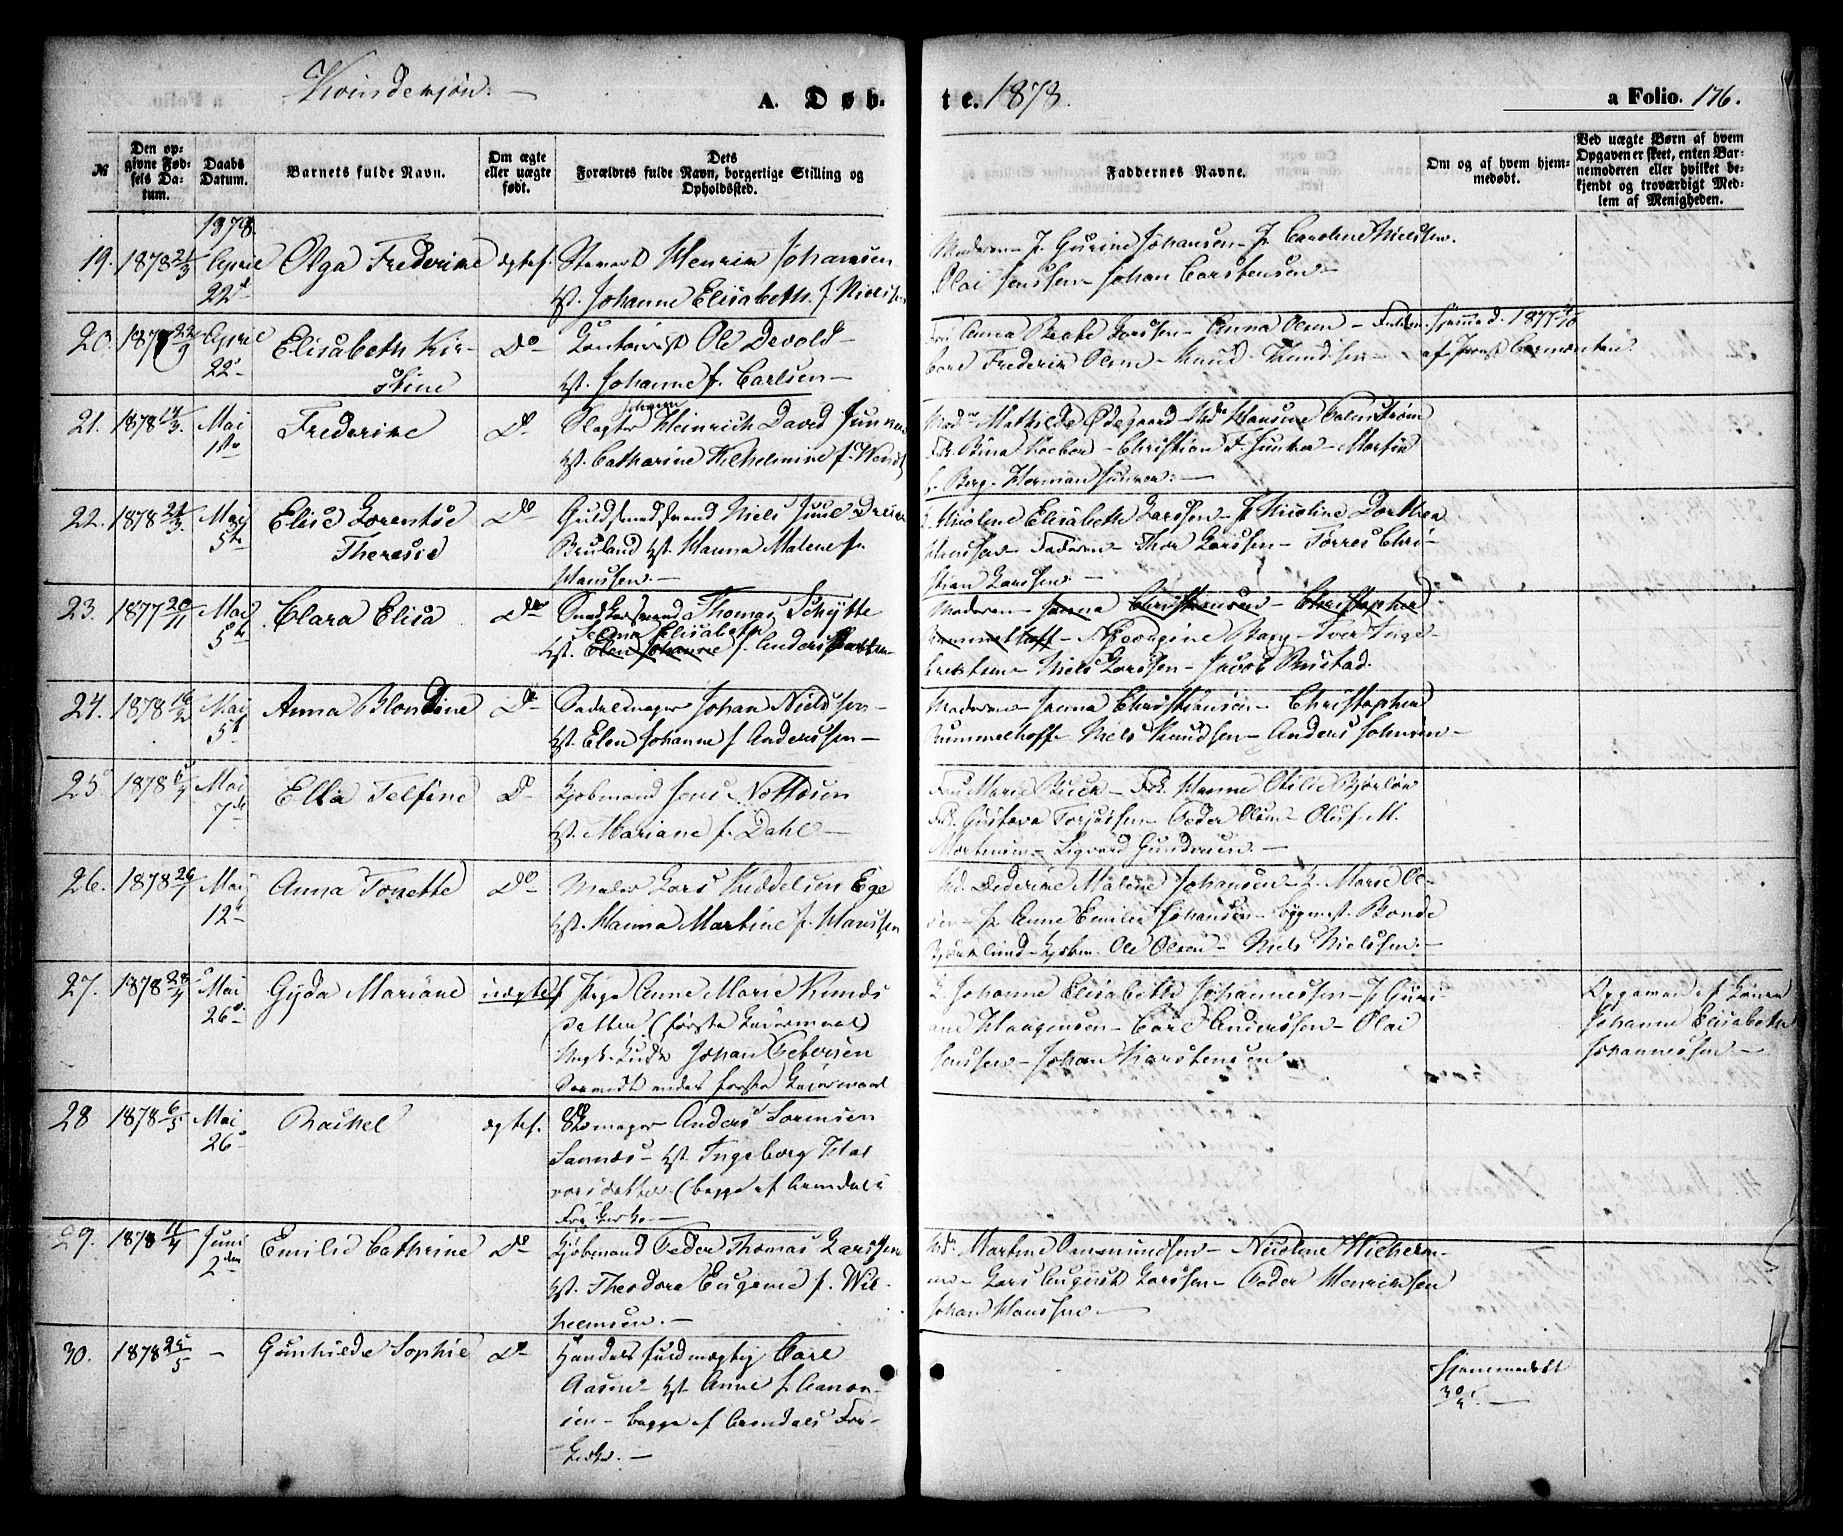 Kvindekjøn.
A. Døb-
te. 1878.
a Folio. 176.
№
Den opgivne Fødsels Datum.
Daabs Datum.
Barnets fulde Navn.
Om ægte eller uægte født.
Dets Forældres fulde Navn, borgerlige Stilling og Opholdssted.
Faddernes Navne.
Om og af hvem hjemmedøbt.
Ved uægte Børn af hvem Opgaven er skeet, enten Barnemoderen eller hvilket bekjendt og troværdigt Medlem af Menigheden.
1878.
19. 1878 21/3 April 22d Olga Frederikke ægtef. Henrik Johansen
Hst. Johanne Elisabeth f. Nielsen
Moderen - J. Gurine Johansen - Jr Caroline Nielsen.
Olai Jenssen - Johan Carstensen -
20. 1877 22/9 April 22d Elisabeth Kirstine Do Contorist Ole Devold -
Hst. Johanne f. Carlsen -
Fru Anna Larssen - Anna Olsen -
Frederik Olsen - Knud Knudsen -
Hjemmed. 1877
21. 1878 14/3. Mai 1ste Frederikke Do Slagter Johan Heinrich David Junker
Hst. Catharine Wilhelmine f. Wendt
Mathilde Ødegaard - Hansine Palmstrøm
Frk. Stina - Christian F. Junker - Martin
Berg. Herman Junker. -
22. 1878 21/3. Mai 5te Elise Lorentse Theresie Do Guldsmedsvend Niels Juul
Bruland Hst. Hanna Malene f.
Hanssen. -
Nicolene Elisabeth Larssen - Jr Nicoline Dorthea
Hanssen - Faderen - Thor Larssen - Torres Chri-
stian Larssen. -
23. 1877 20/11 Mai 5te Clara Elisa Do Snedkersvend Thomas Schytte
Elisabeth
Hst. Elen Johanne f. Anders
Moderen - Janna Christiansen - Christopher
Hummelhoff - Georgine Berg - Iver Inge-
- Niels Larssen - Jacob Rustad.
24. 1878 Mai 5te Anna Blondine Do Sadelmager Johan Nielssen -
Hst. Elen Johanne f. Anderssen -
Moderen - Janna Christiansen - Christopher
Hummelhoff - Niels Knudsen - Anders Johnsen -
25. 1878 6/4 Mai 7de Ella Telfine Do Kjøbmand Jens Nottosen
Hst. Mariane f. Dahl -
Fru Marie - Frk. Hanne Otilie
Frk. Gustava Torjussen - Peder Olsen - Oluf M.
Mortensen - Sigvard Gundersen -
26. 1878 26/1 Mai 12d Anna Tonette Do Maler Lars Middelsen Ege
Hst. Hanna Martine f. Hanssen
Dederikke Malene Johansen - J. Marie Ol-
sen - Jr Anne Emilie Johansen - Bonde
- Kjøbm. Ole Olsen - Niels Nielssen -
27. 1878 28/4 Mai 26d Gyda Mariane uægtef Pige Anne Marie Knuds
datter (første Leiermaal)
Ungk. Johan Petersen
første Leiermaal
J. Johanne Elisabeth Johannessen - J. Guri-
ane Haagensen - Carl Anderssen - Olai
Jenssen - Johan Karstensen
Opgaven af
Johanne Elisabeth
Johannessen -
28 1878 6/5 Mai 26d Rachel ægtef. Skomager Anders Sørensen
Sannæs - Hst. Ingeborg Hal
vorsdatter (begge af Arendals
Frikirke -
29. 1878 11/4 Juni 2den Emilie Cathrine Do Kjøbmand Peder Thomas Larssen
Hst. Theodora Eugenie f. Wil-
helmsen. -
Martine Aanmundsen - Nicoline Wilhelm-
sen - Lars August Larssen - Peder Henriksen
Johan Hanssen -
30. 1878 25/5 - Gunhilde Sophie Do Handelsfuldmægtig Carl
Aasen - Hst. Anne f. Aanon-
sen - begge af Arendals Fri-
kirke. -
Hjemmedøbt